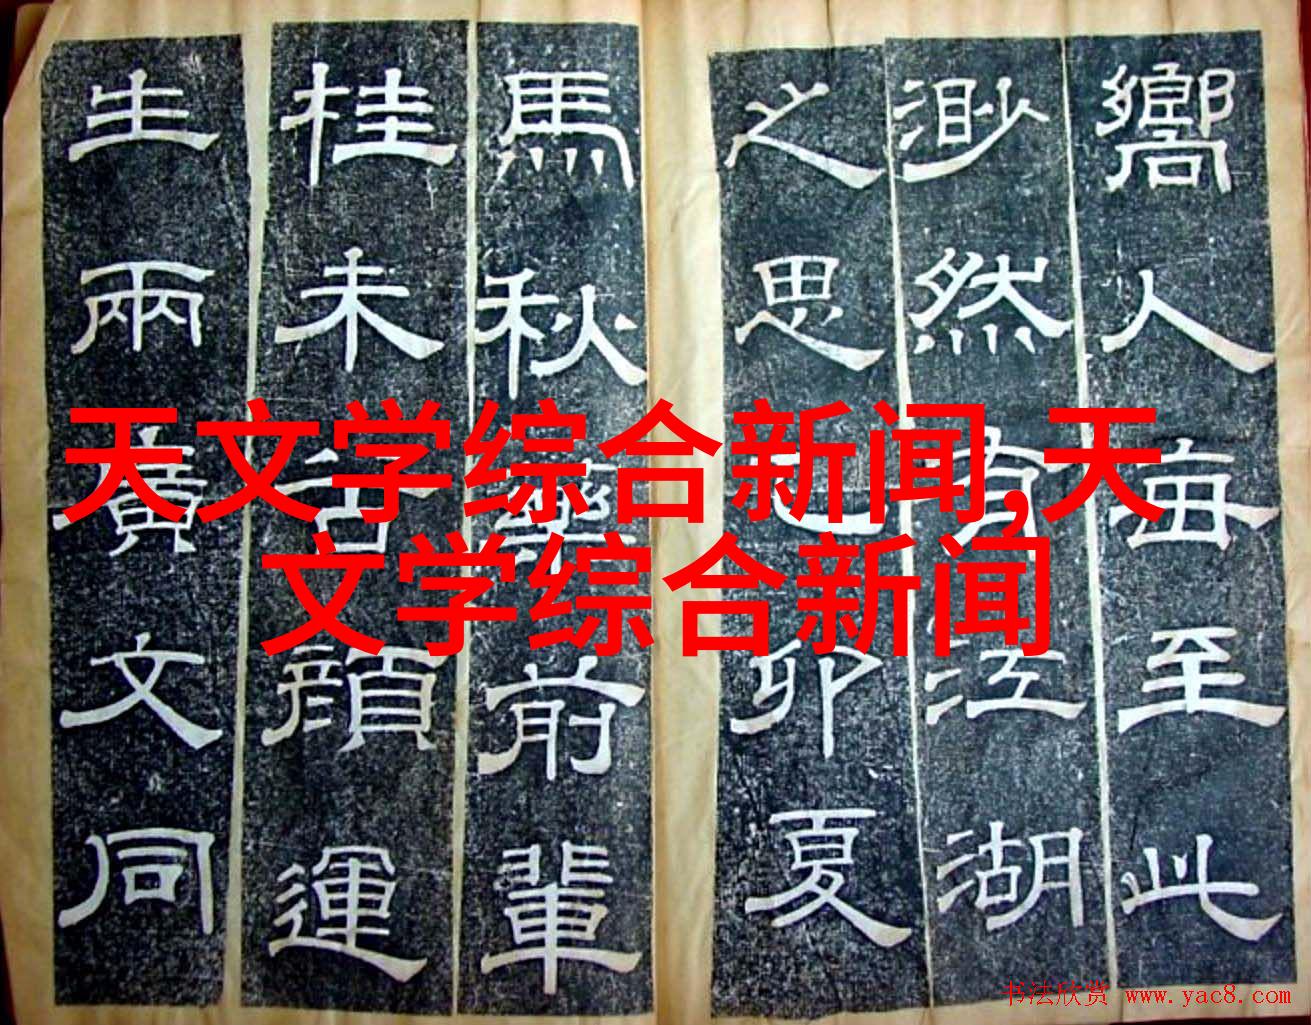 嚮人每至此
渺然有江湖
之思卯夏
馬秋藥前輩
桂未谷顏運
生兩廣文同
天文学综合新闻,天
文学综合新闻
书法欣赏 www.yac8.com